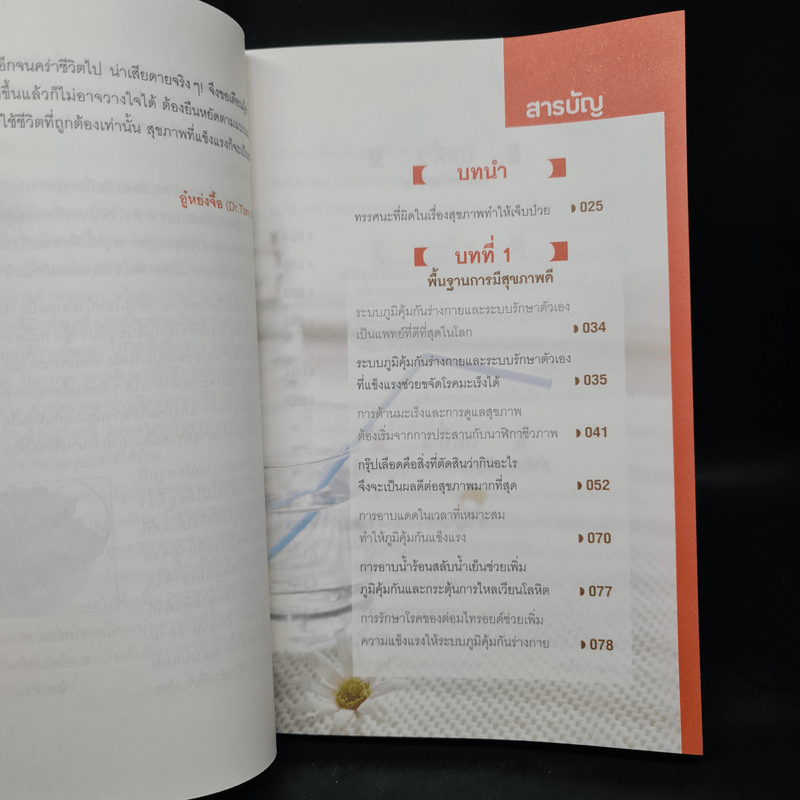 อีกจนคร่าชีวิตไป น่าเสียดายจริงๆ! จึงขอเตือน
ขึ้นแล้วก็ไม่อาจวางใจได้ ต้องยืนหยัดตาม
ใช้ชีวิตที่ถูกต้องเท่านั้น สุขภาพที่แข็งแรงก็จะ
อู๋หย่งจื้อ (Dr.Tom
สารบัญ
บทนำ
ทรรศนะที่ผิดในเรื่องสุขภาพทำให้เจ็บป่วย 025
บทที่ 1
พื้นฐานการมีสุขภาพดี
ระบบภูมิคุ้มกันร่างกายและระบบรักษาตัวเอง
เป็นแพทย์ที่ดีที่สุดในโลก 034
ระบบภูมิคุ้มกันร่างกายและระบบรักษาตัวเอง
ที่แข็งแรงช่วยขจัดโรคมะเร็งได้ 035
การต้านมะเร็งและการดูแลสุขภาพ
ต้องเริ่มจากการประสานกับนาฬิกาชีวภาพ 041
กรุ๊ปเลือดคือสิ่งที่ตัดสินว่ากินอะไร
จึงจะเป็นผลดีต่อสุขภาพมากที่สุด 052
การอาบแดดในเวลาที่เหมาะสม
ทำให้ภูมิคุ้มกันแข็งแรง 070
การอาบน้ำร้อนสลับน้ำเย็นช่วยเพิ่ม
ภูมิคุ้มกันและกระตุ้นการไหลเวียนโลหิต 077
การรักษาโรคของต่อมไทรอยด์ช่วยเพิ่ม
ความแข็งแรงให้ระบบภูมิคุ้มกันร่างกาย 078